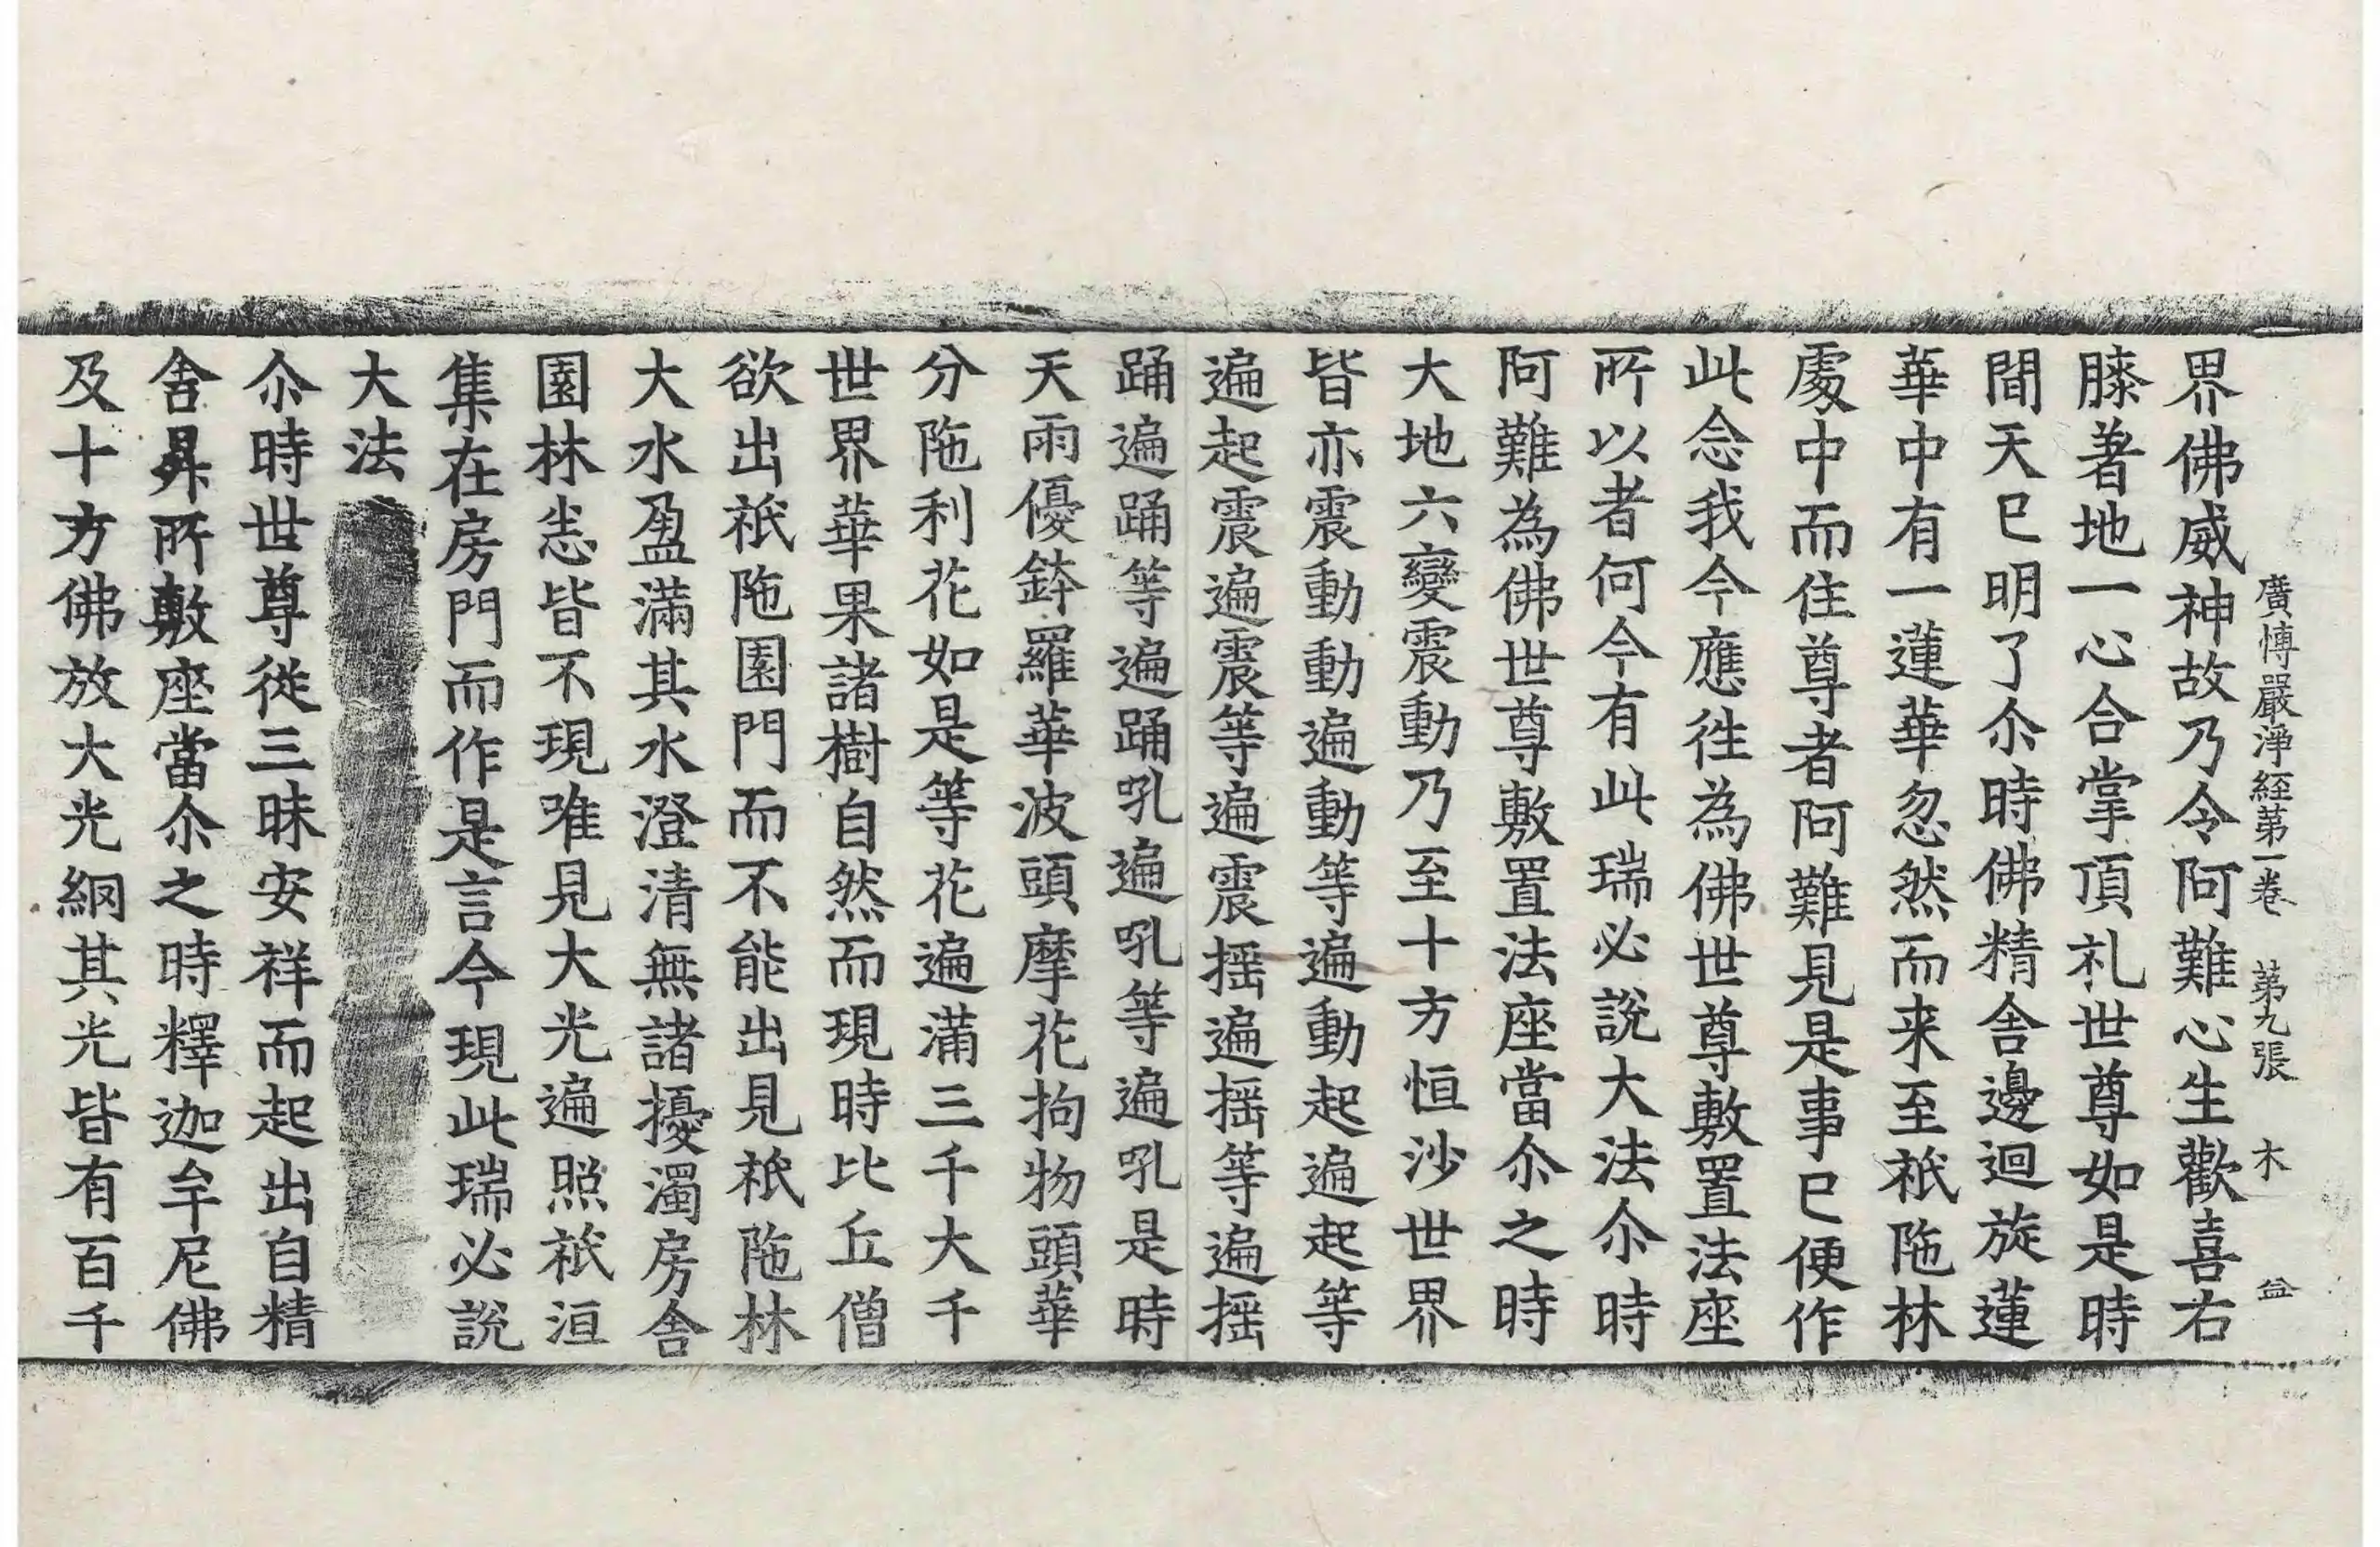 廣博嚴淨經第一卷　第九張　木　益
界佛威神故乃令阿難心生歡喜右
膝著地一心合掌頂礼世尊如是時
間天已明了尒時佛精舎邊迴旋蓮
華中有一蓮華忽然而来至祇陁林
處中而住尊者阿難見是事已便作
此念我今應徃為佛世尊敷置法座
所以者何今有此瑞必說大法尒時
阿難為佛世尊敷置法座當尒之時
大地六變震動乃至十方恒沙世界
皆亦震動動遍動等遍動起遍起等
遍起震遍震等遍震揺遍揺等遍揺
踊遍踊等遍踊吼遍吼等遍吼是時
天雨優鉢羅華波頭摩花拘物頭華
分陁利花如是等花遍滿三千大千
世界華果諸樹自然而現時比丘僧
欲出祇陁園門而不能出見祇陁林
大水盈滿其水澄清無諸擾濁房舎
園林悉皆不現唯見大光遍照祇洹
集在房門而作是言今現此瑞必說
大法
尒時世尊從三昧安祥而起出自精
舎昇所敷座當尒之時釋迦牟尼佛
及十方佛放大光網其光皆有百千